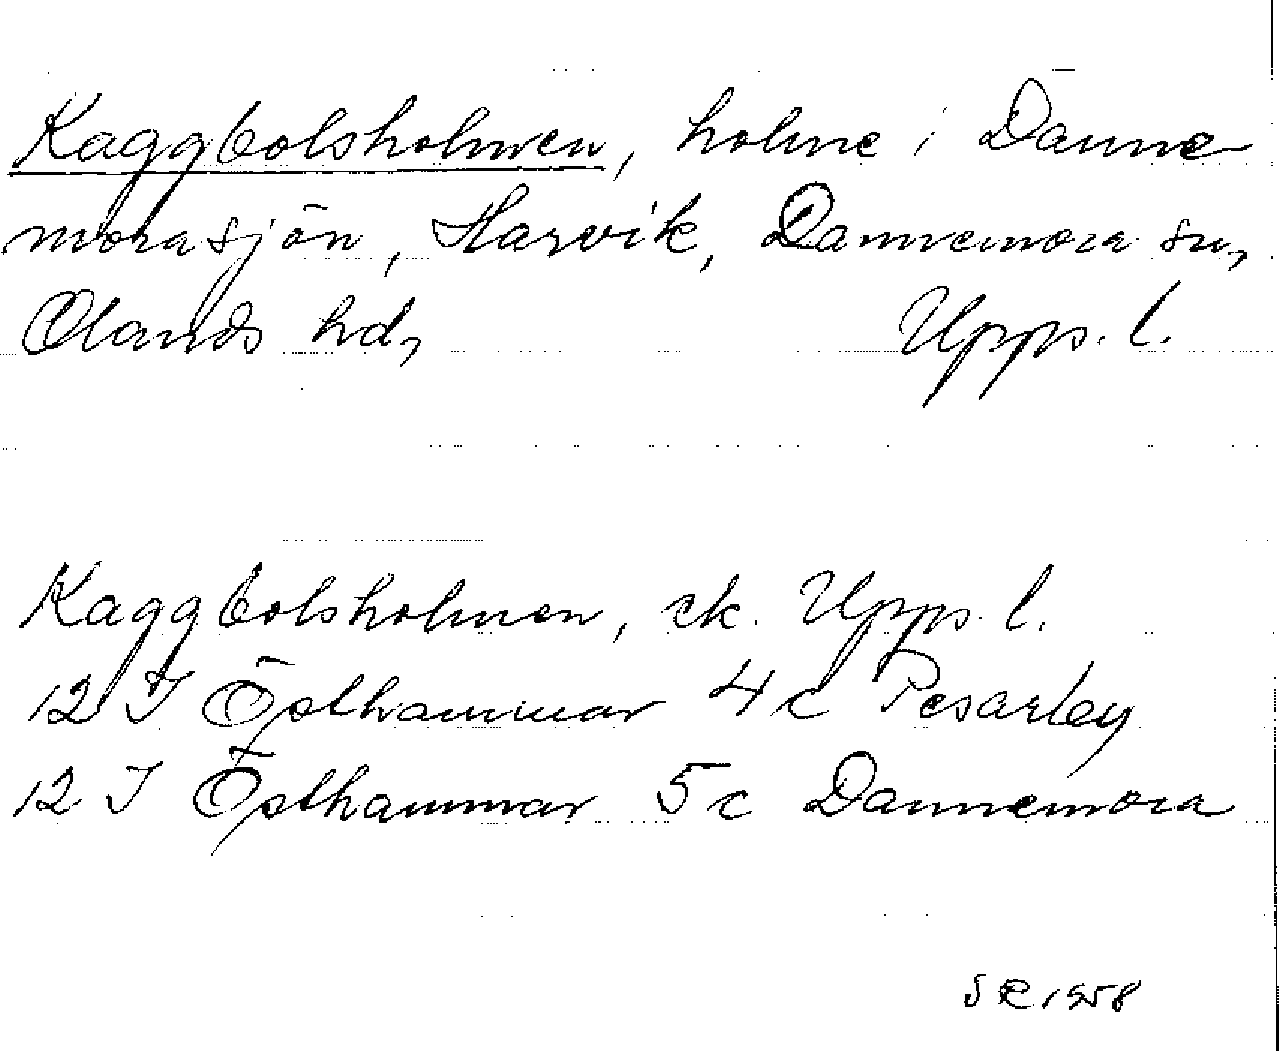 Kaggbolsholmen, holme i Danne
morasjön, Harvik, Dannemora sn,
Olands hd, Upps. l.
Kaggbolsholmen, ek. Upps. l.
12 I Östhammar 4 c Pesarby
12 I Östhammar 5 c Dannemora
S R 1958